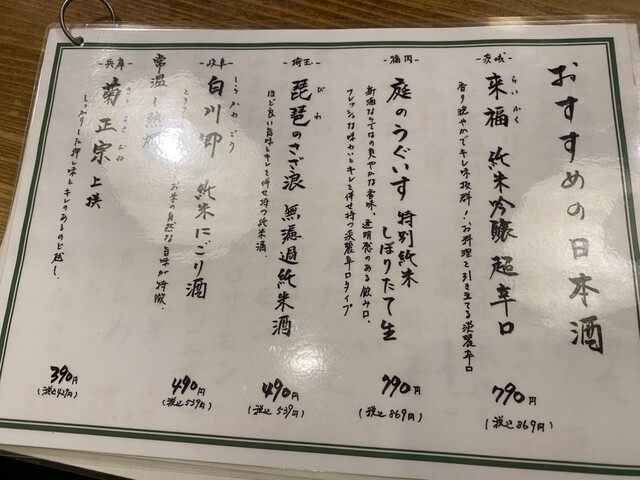 おすすめの日本酒
-茨城-
らいふく
来福 純米吟醸 超辛口
香り穏やかでキレ味抜群！お料理を引き立てる淡麗辛口
790円
(税込869円)
-福岡-
庭のうぐいす 特別純米
しぼりたて生
新酒ならではの爽やかな香味、透明感のある飲み口。
フレッシュな味わいとキレを併せ持つ淡麗辛口タイプ
790円
(税込869円)
-埼玉-
びわ
琵琶のさざ浪 無濾過純米酒
ほど良い旨味とキレを併せ持つ純米酒。
490円
(税込539円)
-岐阜-
しらかわごう
白川郷 純米にごり酒
お米の自然な旨味が特徴。
490円
(税込539円)
常温
-兵庫-
きくまさむね
菊正宗 上撰
しっかりした押し味とキレのあるのど越し。
390円
(税込429円)